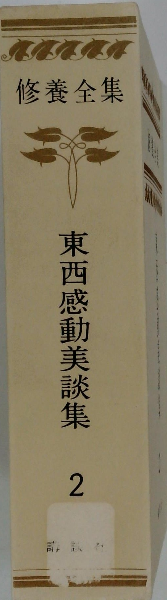 修養全集
東西感動美談集
2